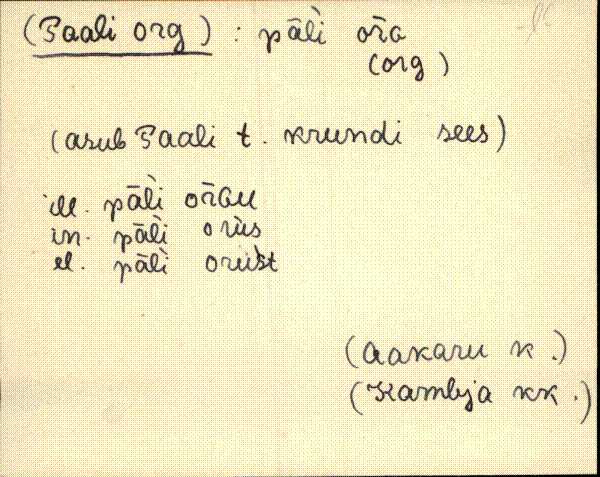 (Paali org) : pāl̀i or̄ᴀ
(org)
(asub Paali t. krundi sees)
ill. pāl̀i or̄ɢu
in. pāl̀i oriìs
el. pāl̀i oriìst
(Aakaru k.)
(Kambja kk.)